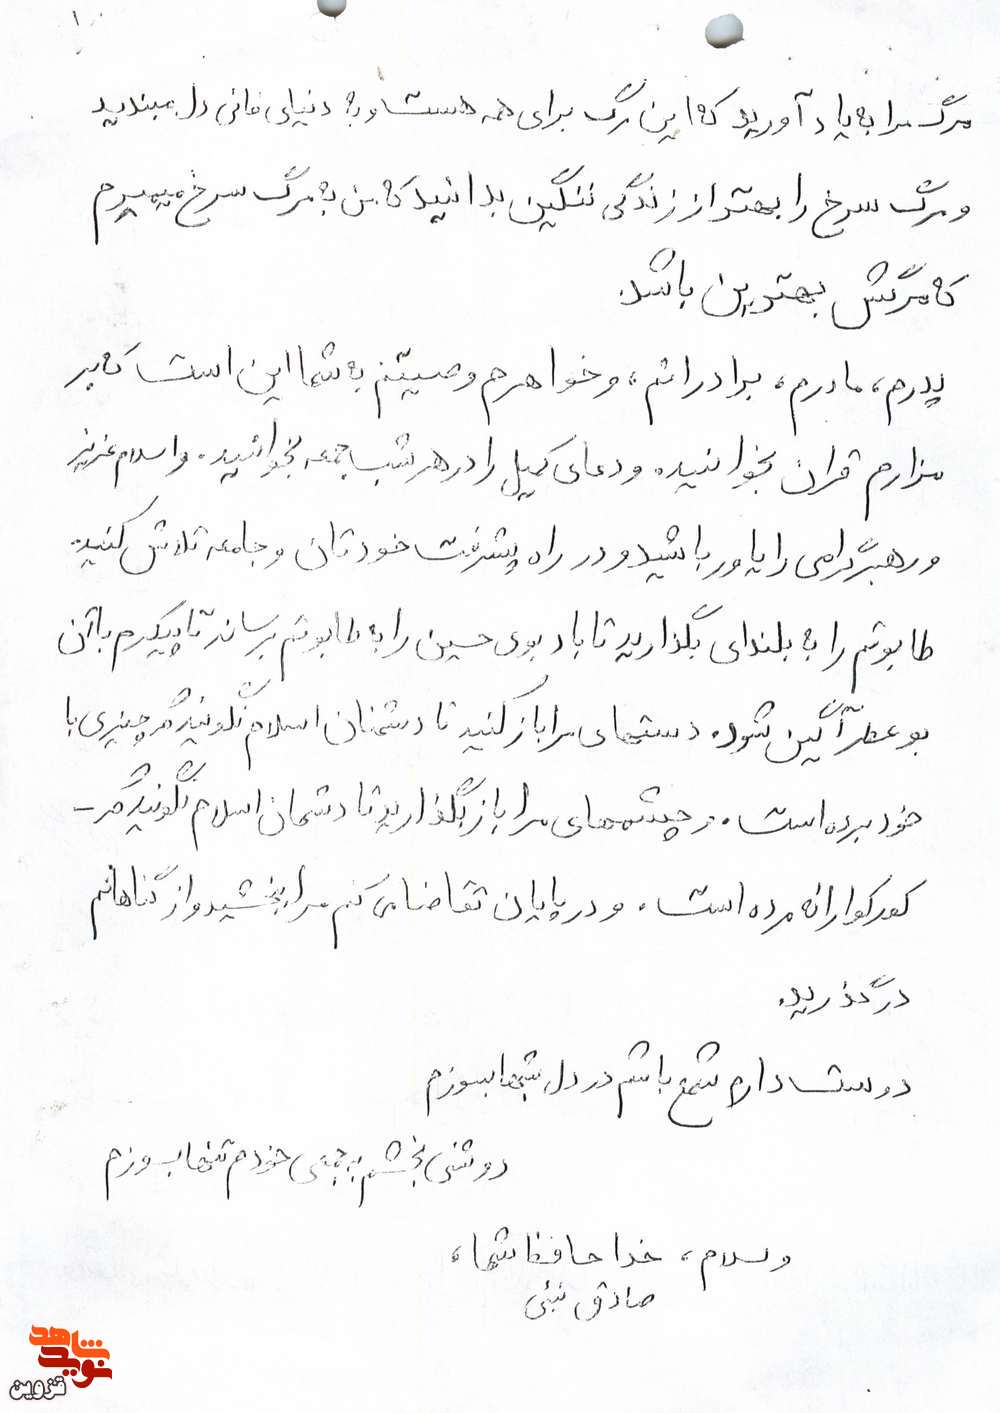 مرگ مرا به یاد آورید که این مرگ برای همه هست و به دنیای فانی دل مبندید
و مرگ سرخ را بهتر از زندگی ننگین بدانید که من به مرگ سرخ میمیرم
که مرگش بهترین باشد.
پدرم، مادرم، برادرانم، و خواهرم وصیتم به شما این است که بر
مزارم قران بخوانید. و دعای کمیل را در هر شب جمعه بخوانید. و اسلام عزیز
و رهبر گرامی را یاور باشید و در راه پیشرفت خودتان و جامعه تلاش کنید.
طابوتم را به بلندای بگذارید تا باد بوی حسین را به طابوتم برساند تا پیکرم با آن
بو عطرآگین شود. دستهای مرا باز کنید تا دشمنان اسلام نگویند که چیزی با
خود برده است. و چشمهای مرا باز بگذارید تا دشمان اسلام نگویند که -
کورکورانه مرده است. و در پایان تقاضا می کنم مرا ببخشید و از گناهانم
درگذرید.
دوست دارم شمع باشم در دل شبها بسوزم
روشنی بخشم به جمعی خودم تنها بسوزم
وسلام، خدا حافظ شما،
صادق نبئی
شاهد
نوید
قزوین